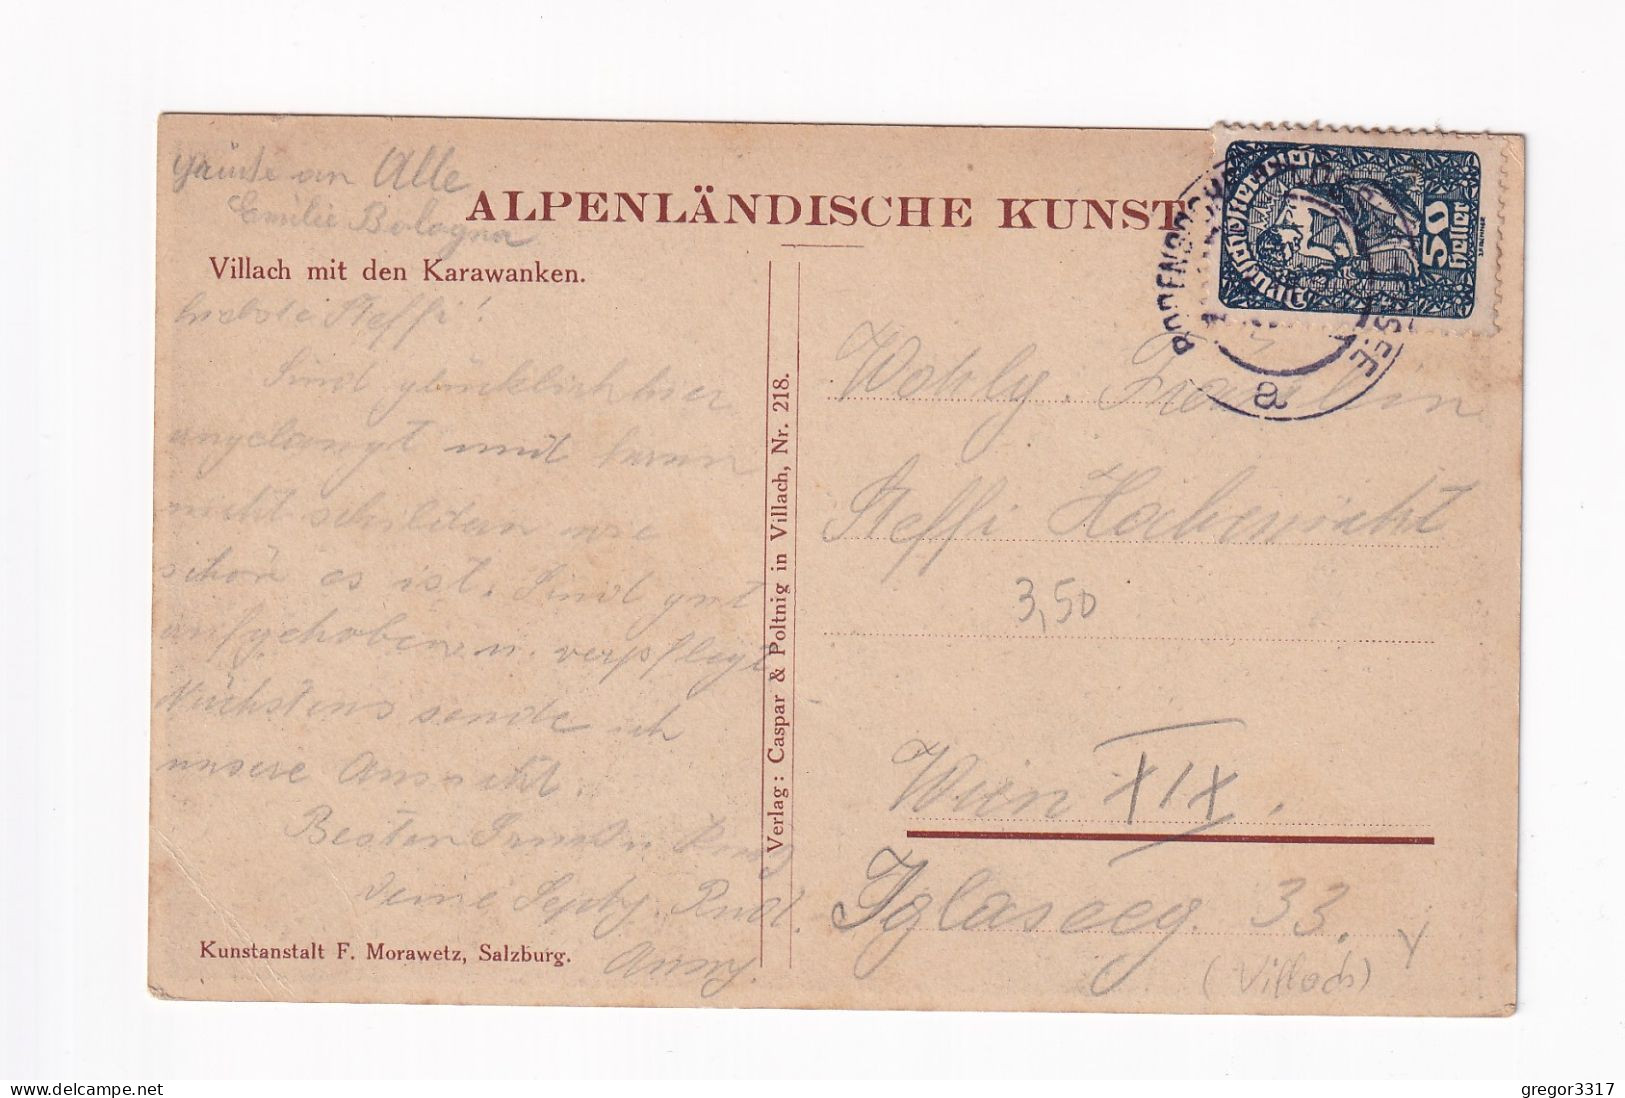 Grüße an Alle
Emilie Bologna
ALPENLÄNDISCHE KUNST
Villach mit den Karawanken.
Liebste Steffi!
Sind glücklich hier
angelangt und kann
nicht schildern wie
schön es ist. Sind gut
aufgehoben u. verpflegt
Nächstens sende ich
unsere Ansicht.
Besten
deine Rud.
Anny.
Kunstanstalt F. Morawetz, Salzburg.
Verlag: Caspar & Poltnig in Villach, Nr. 218.
50
heller
a
Wohlg. Fräulein
Steffi Habernicht
3,50
Wien XIX.
Iglaseeg. 33.
(Villach)
gregor3317